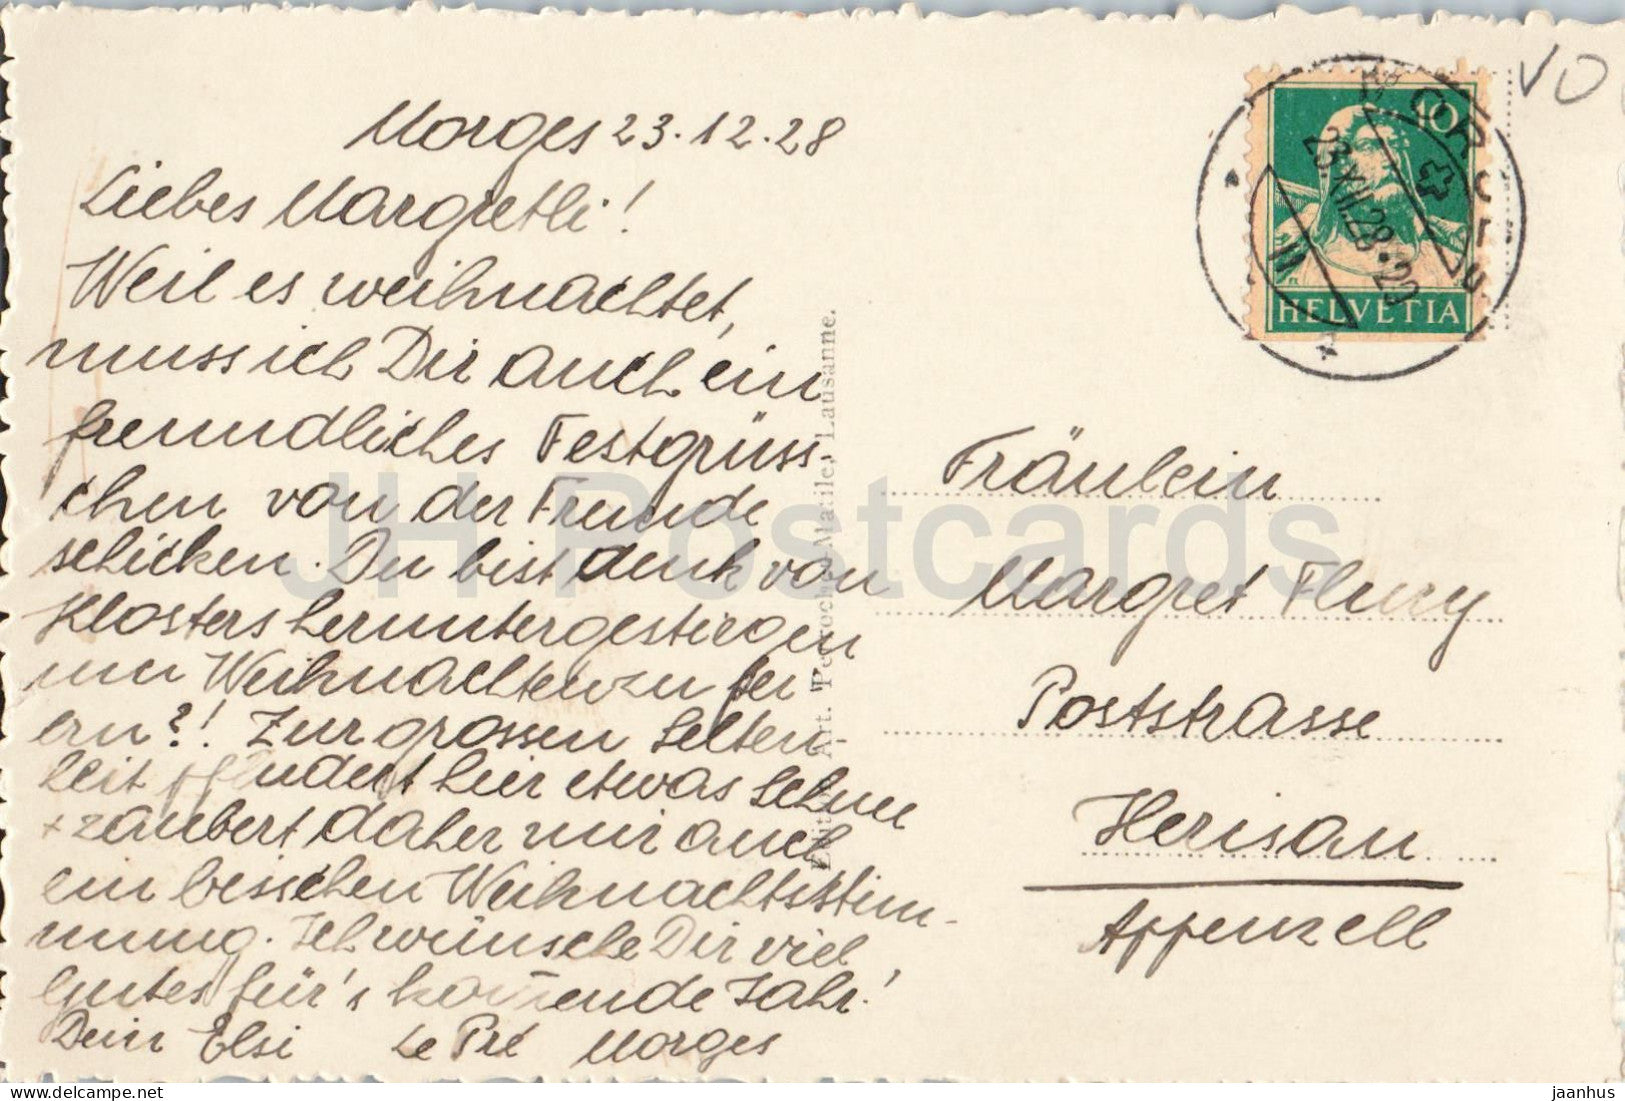 Morges 23.12.28
Liebes Margretli!
Weil es weihnachtet,
muss ich Dir auch ein
freundliches Festgrüss-
chen von der Fremde
schicken. Du bist denk von
Klosters heruntergestiegen
um Weihnachten zu fei
ern?! Zur grossen Selten-
heit pfludert hier etwas Schnee
+ zaubert daher mir auch
ein bisschen Weihnachtsstim-
mung. Ich wünsche Dir viel
gutes für's kommende Jahr!
Dein Elsi Le Pré Morges
Lausanne.
VO
10
HELVETIA
23.XII.28
Fräulein
Margret Flury
Poststrasse
Herisau
Appenzell
JH Postcards
www.delcampe.net
jaanhus